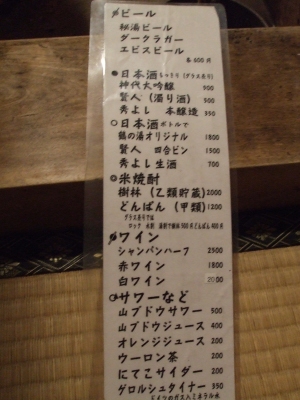 ビール
秘湯ビール
ダークラガー
エビスビール
各600円
●日本酒 もっきり(グラス売り)
神代大吟醸 900
賢人(濁り酒) 500
秀よし 本醸造 350
○日本酒 ボトルで
鶴の湯オリジナル 1800
賢人 四合ビン 1500
秀よし生酒 700
米焼酎
樹林(乙類貯蔵) 2000
どんぱん(甲類) 1200
グラス売りでは
ワイン
シャンパンハーフ 2500
赤ワイン 1800
白ワイン
サワーなど
山ブドウサワー 500
山ブドウジュース 400
オレンジジュース 200
ウーロン茶 200
にてこサイダー 200
ゲロルシュタイナー 350
ドイツのガス入ミネラル水